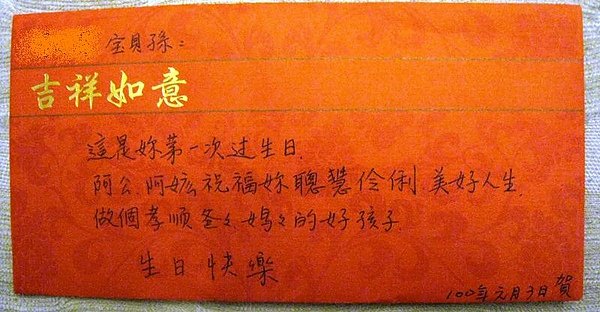 宝貝孫：
吉祥如意
這是妳第一次过生日.
阿公.阿嬤祝福妳聰慧伶俐.美好人生.
做個孝顺爸々媽々的好孩子.
生日快樂
100年元月3日賀